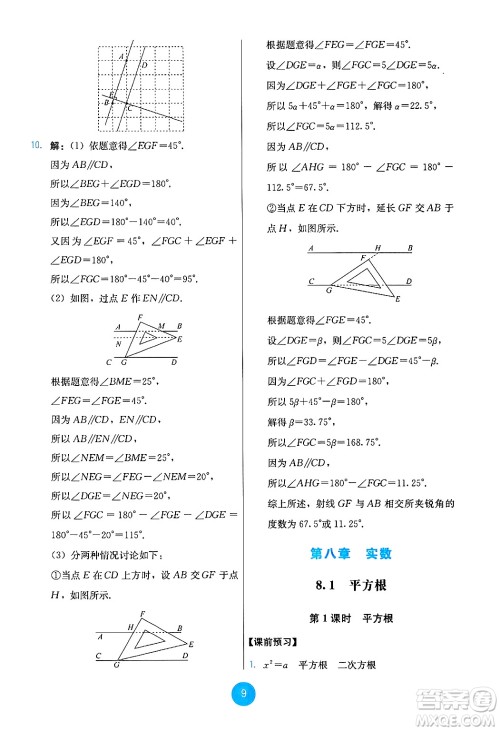 A
D
E
B
C
10. 解：（1）依题意得∠EGF＝45°.
因为 AB∥CD，
所以∠BEG＋∠EGD＝180°.
因为∠BEG＝140°，
所以∠EGD＝180°－140°＝40°.
又因为∠EGF＝45°，∠FGC＋∠EGF＋∠EGD＝180°，
所以∠FGC＝180°－45°－40°＝95°.
（2）如图，过点 E 作EN∥CD.
F
A M B
N E
C G D
根据题意得∠BME＝25°，
∠FEG＝∠FGE＝45°.
因为 AB∥CD，EN∥CD，
所以 AB∥EN∥CD.
所以∠NEM＝∠BME＝25°.
所以∠NEG＝∠FEG－∠NEM＝20°.
所以∠DGE＝∠NEG＝20°.
所以∠FGC＝180°－∠FGE－∠DGE＝115°.
（3）分两种情况讨论如下：
①当点 E 在 CD 上方时，设 AB 与 FG 交于点 H，如图所示.
F
A H B
E
C G D
根据题意得∠FEG＝∠FGE＝45°.
设∠DGE＝α，则∠FGC＝5∠DGE＝5α.
因为∠DGE＋∠FGE＋∠FGC＝180°，
所以 5α＋45°＋α＝180°.
解得 α＝22.5°.
所以∠FGC＝5α＝112.5°.
因为 AB∥CD，
所以∠AHG＋∠FGC＝180°.
所以∠AHG＝180°－∠FGC＝180°－112.5°＝67.5°.
②当点 E 在 CD 下方时，延长 GF 交 AB 于点 H，如图所示.
A H B
F
C G D
E
根据题意得∠FGE＝45°.
设∠DGE＝β，则∠FGC＝5∠DGE＝5β.
所以∠FGD＝∠FGE－∠DGE＝45°－β.
因为∠FGC＋∠FGD＝180°，
所以 5β＋45°－β＝180°.
解得 β＝33.75°.
所以∠FGC＝5β＝168.75°.
因为 AB∥CD，
所以∠AHG＋∠FGC＝180°.
所以∠AHG＝180°－∠FGC＝11.25°.
综上所述，射线 GF 与 AB 相交所夹锐角的度数为 67.5°或 11.25°.
第八章 实数
8.1 平方根
第 1 课时 平方根
【课前预习】
1. x²＝a 平方根 二次方根
9